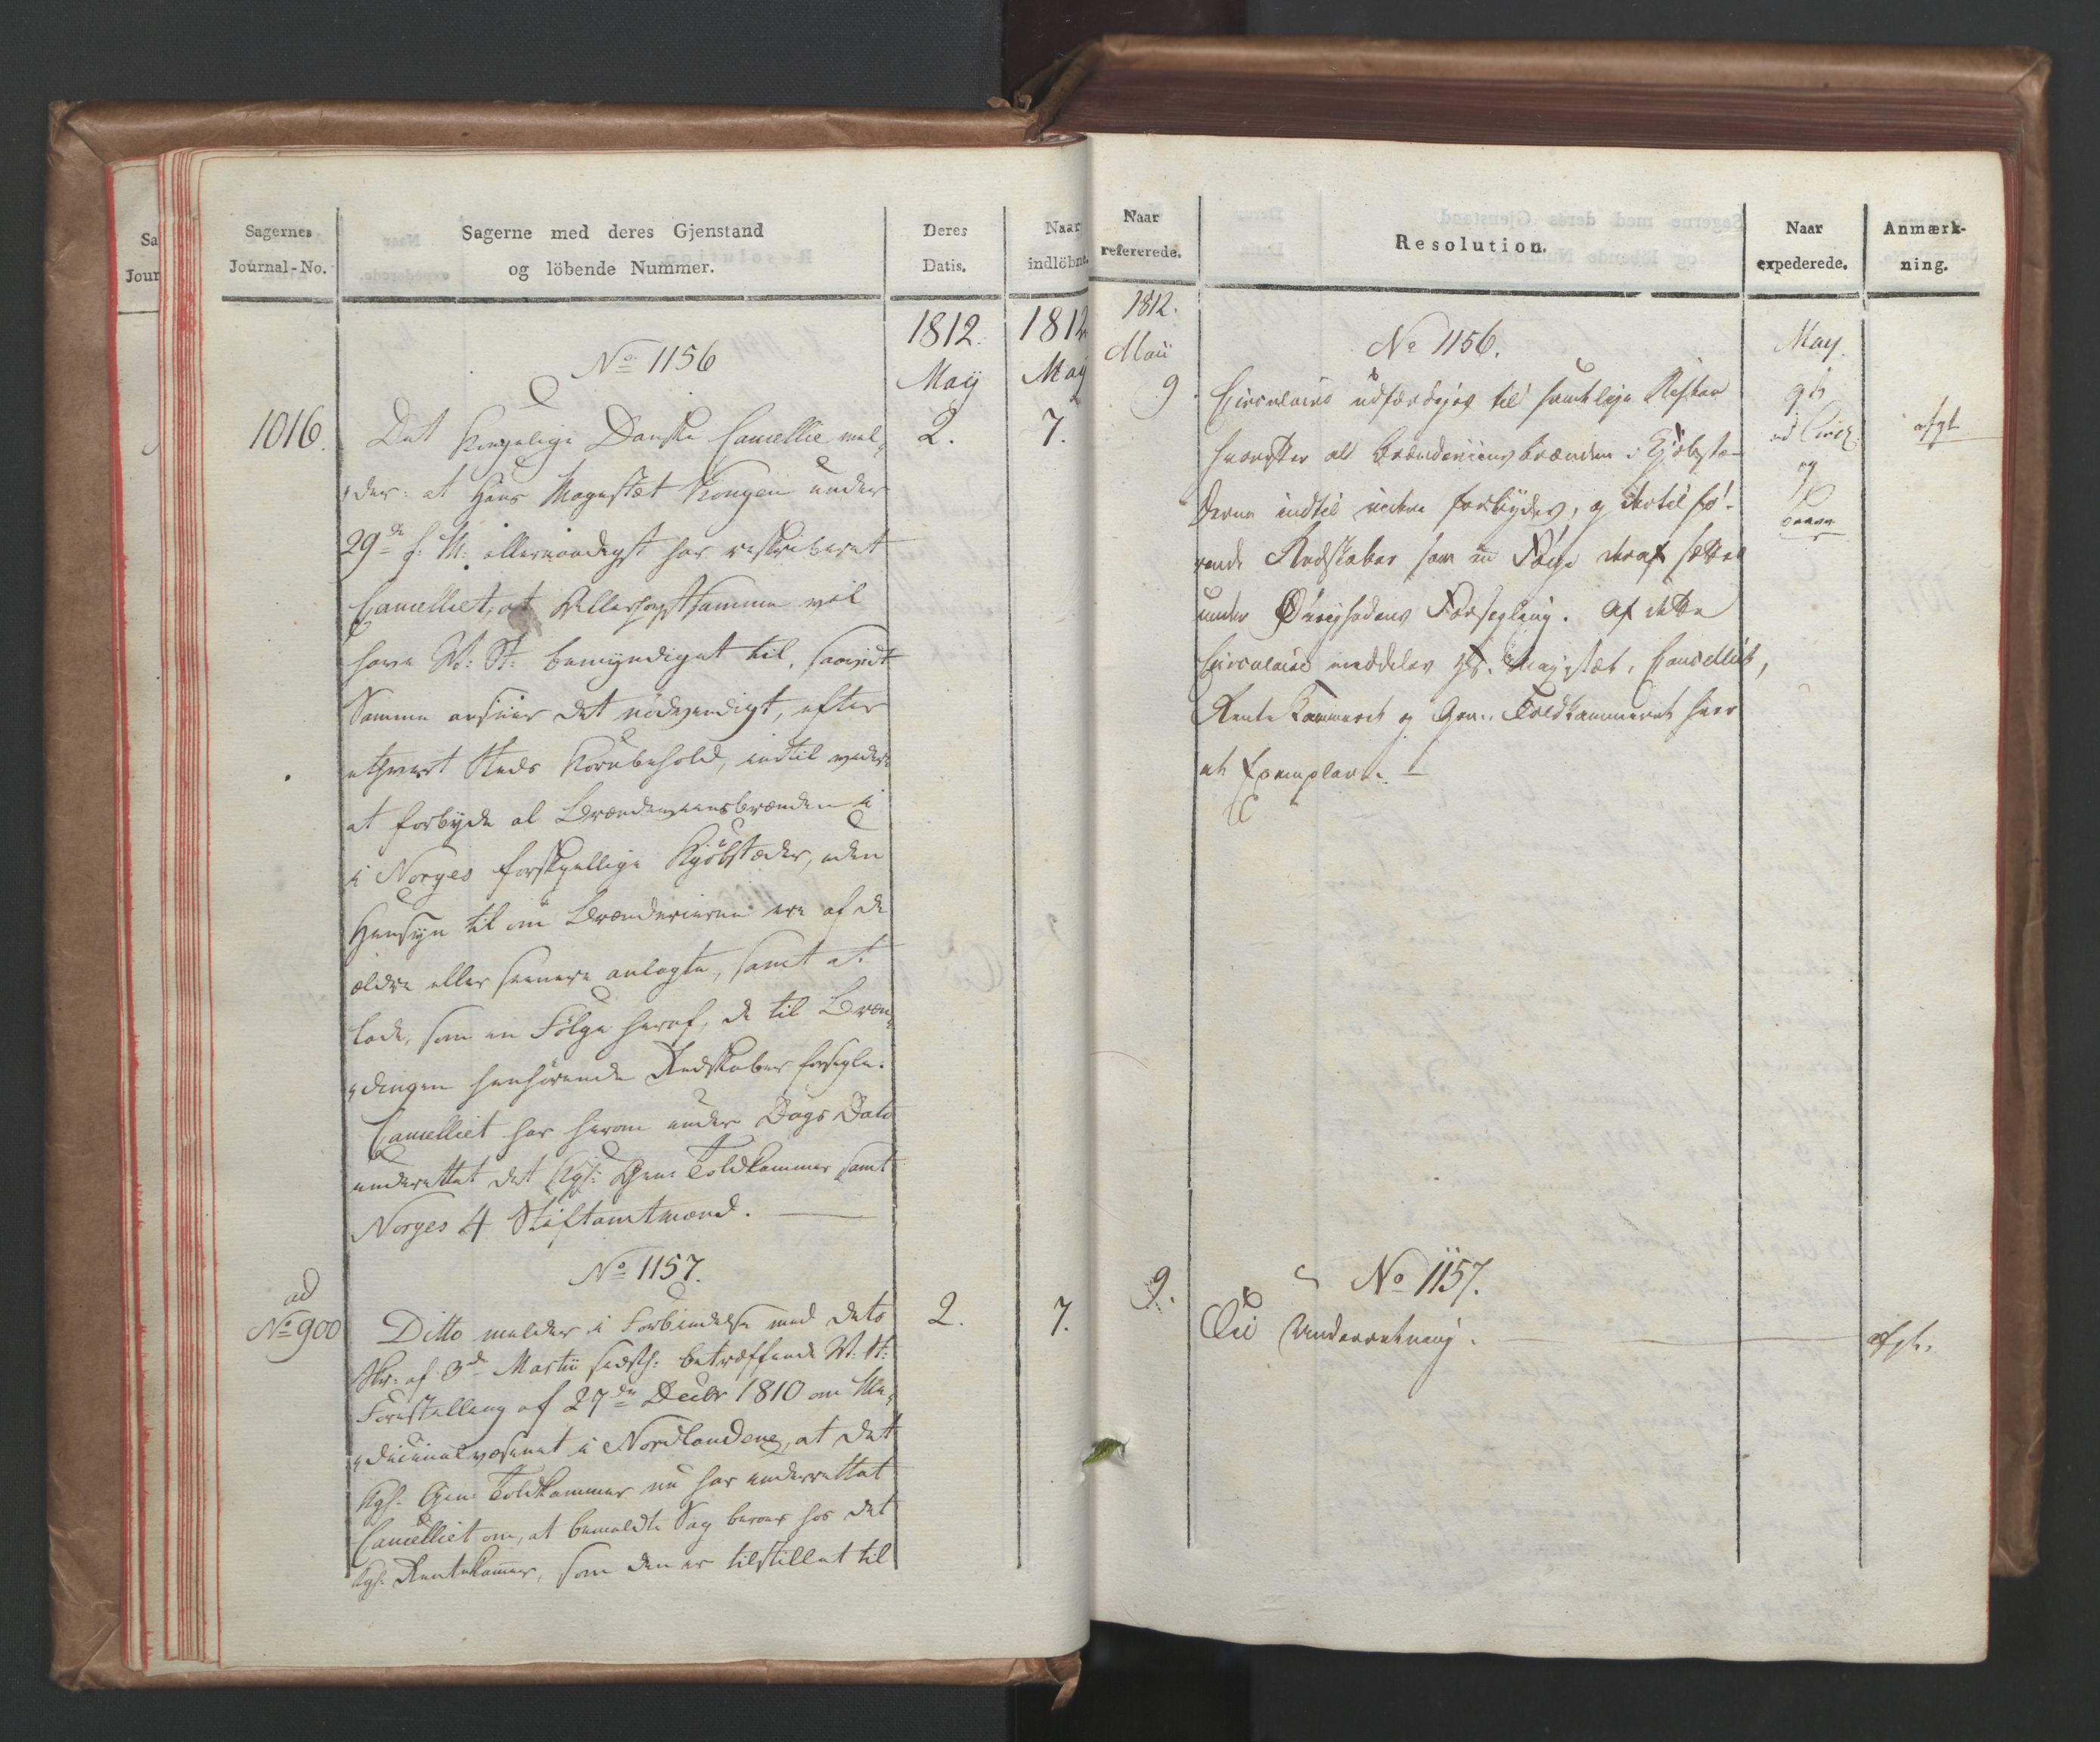 Sa
Jour
Sagernes
Journal-No.
Sagerne med deres Gjenstand
og löbende Nummer.
Deres
Datis.
Naar
indlöbne.
1812.
May
1812
May
No 1156
1016.
Det Kongelige Danske Cancellie mel-
der: at Hans Mayestæt Kongen under
29de f: M: allernaadigst har reskriberet
Cancelliet, at Allerhøystsamme vil
have R: St: bemyndiget til, saavidt
Samme anseer det nødvendigt, efter
ethvert Steds Kornbehold, indtil videre
at forbyde al Brændeviinsbrænden i
i Norges forskjellige Kjøbstæder, uden
Hensyn til om Brænderierne ere af de
ældre eller senere anlagte, samt at
lade, som en Følge heraf, de til Bræn-
dingen henhørende Redskaber forsegle.
Cancelliet har herom under Dags Dato
underrettet det Kgl: Gene Toldkammer samt
Norges 4 Stiftamtmænd.
2.
7.
No 1157.
ad
No 900
Ditto melder i Forbindelse med dets
Skr: af 3de Martii sidstl: betræffende R: St:
Forestilling af 27de Decbr 1810 om Me-
dicinalvæsenet i Nordlandene, at det
Kgl. Gene Toldkammer nu har underrettet
Cancelliet om, at bemeldte Sag beroer hos det
Kgl. Rentekammer, som den er tilstillet til
2.
7.
Naar
refererede.
Resolution.
Naar
expederede.
Anmærk-
ning.
1812.
Maii
9
No 1156.
Circulaire udfærdiges til samtlige Stifter
hvorefter al Brændeviinsbrænden i Kjøbstæ-
derne indtil videre forbydes, og dertil hø-
rende Redskaber som en Følge deraf sættes
under Øvrighedens Forsegling. Af dette
Circulaire meddeles Hs. Mayestæt, Cancelliet,
Rente Kammeret og Gen: Toldkammeret hver
et Exemplar.
May.
9de
og
afgt
9.
No 1157.
Underretning.
afgt.